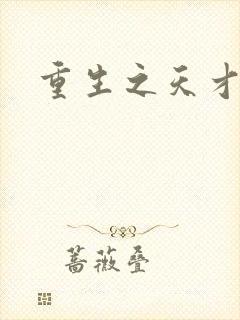 重生之天才
蔷薇叠